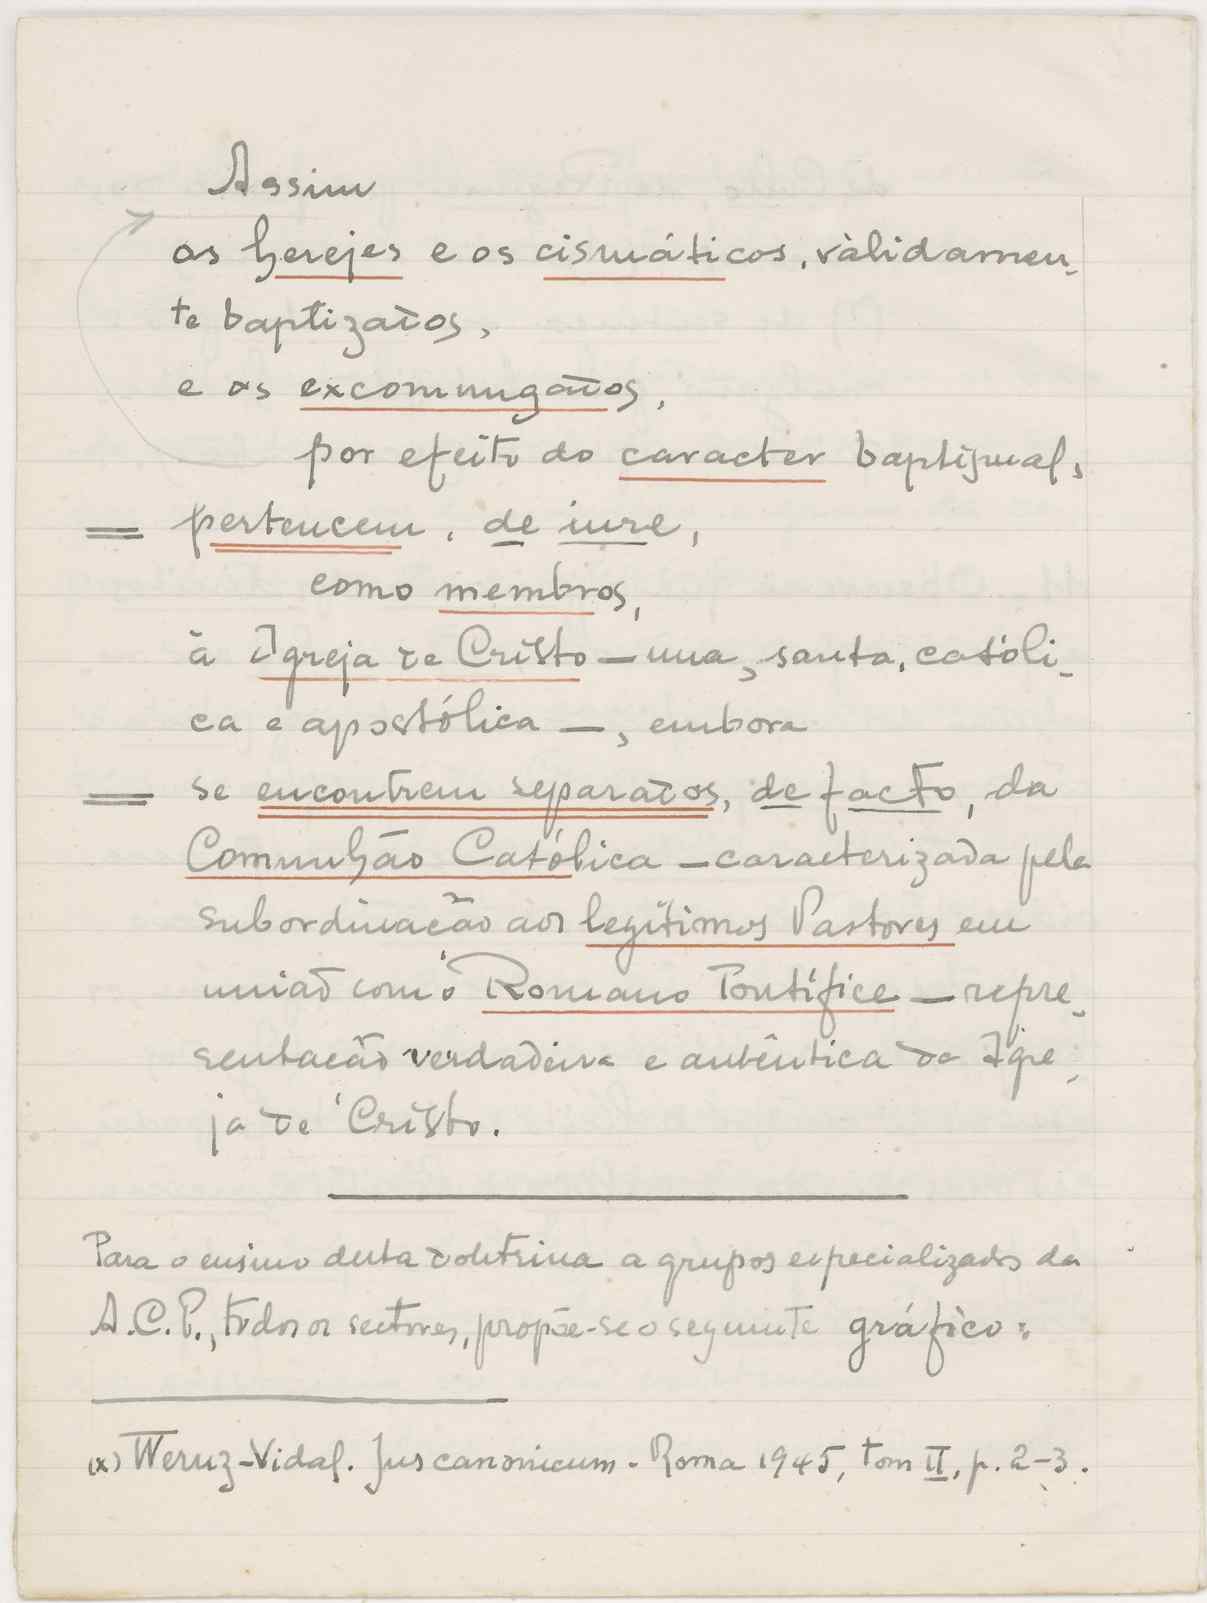 Assim
os herejes e os cismáticos, vàlidamen-
te baptizados,
e os excomungados,
por efeito do caracter baptismal,
pertencem, de iure,
como membros,
à Igreja de Cristo — una, santa, católi-
ca e apostólica —, embora
se encontrem separados, de facto, da
Comunhão Católica — caracterizada pela
subordinação aos legítimos Pastores em
união com o Romano Pontífice — repre-
sentação verdadeira e autêntica da Igre-
ja de Cristo.
Para o ensino desta doutrina a grupos especializados da
A.C.P., todos os sectores, propõe-se o seguinte gráfico:
(x) Wernz-Vidal. Jus canonicum. Roma 1945, tom II, p. 2-3.